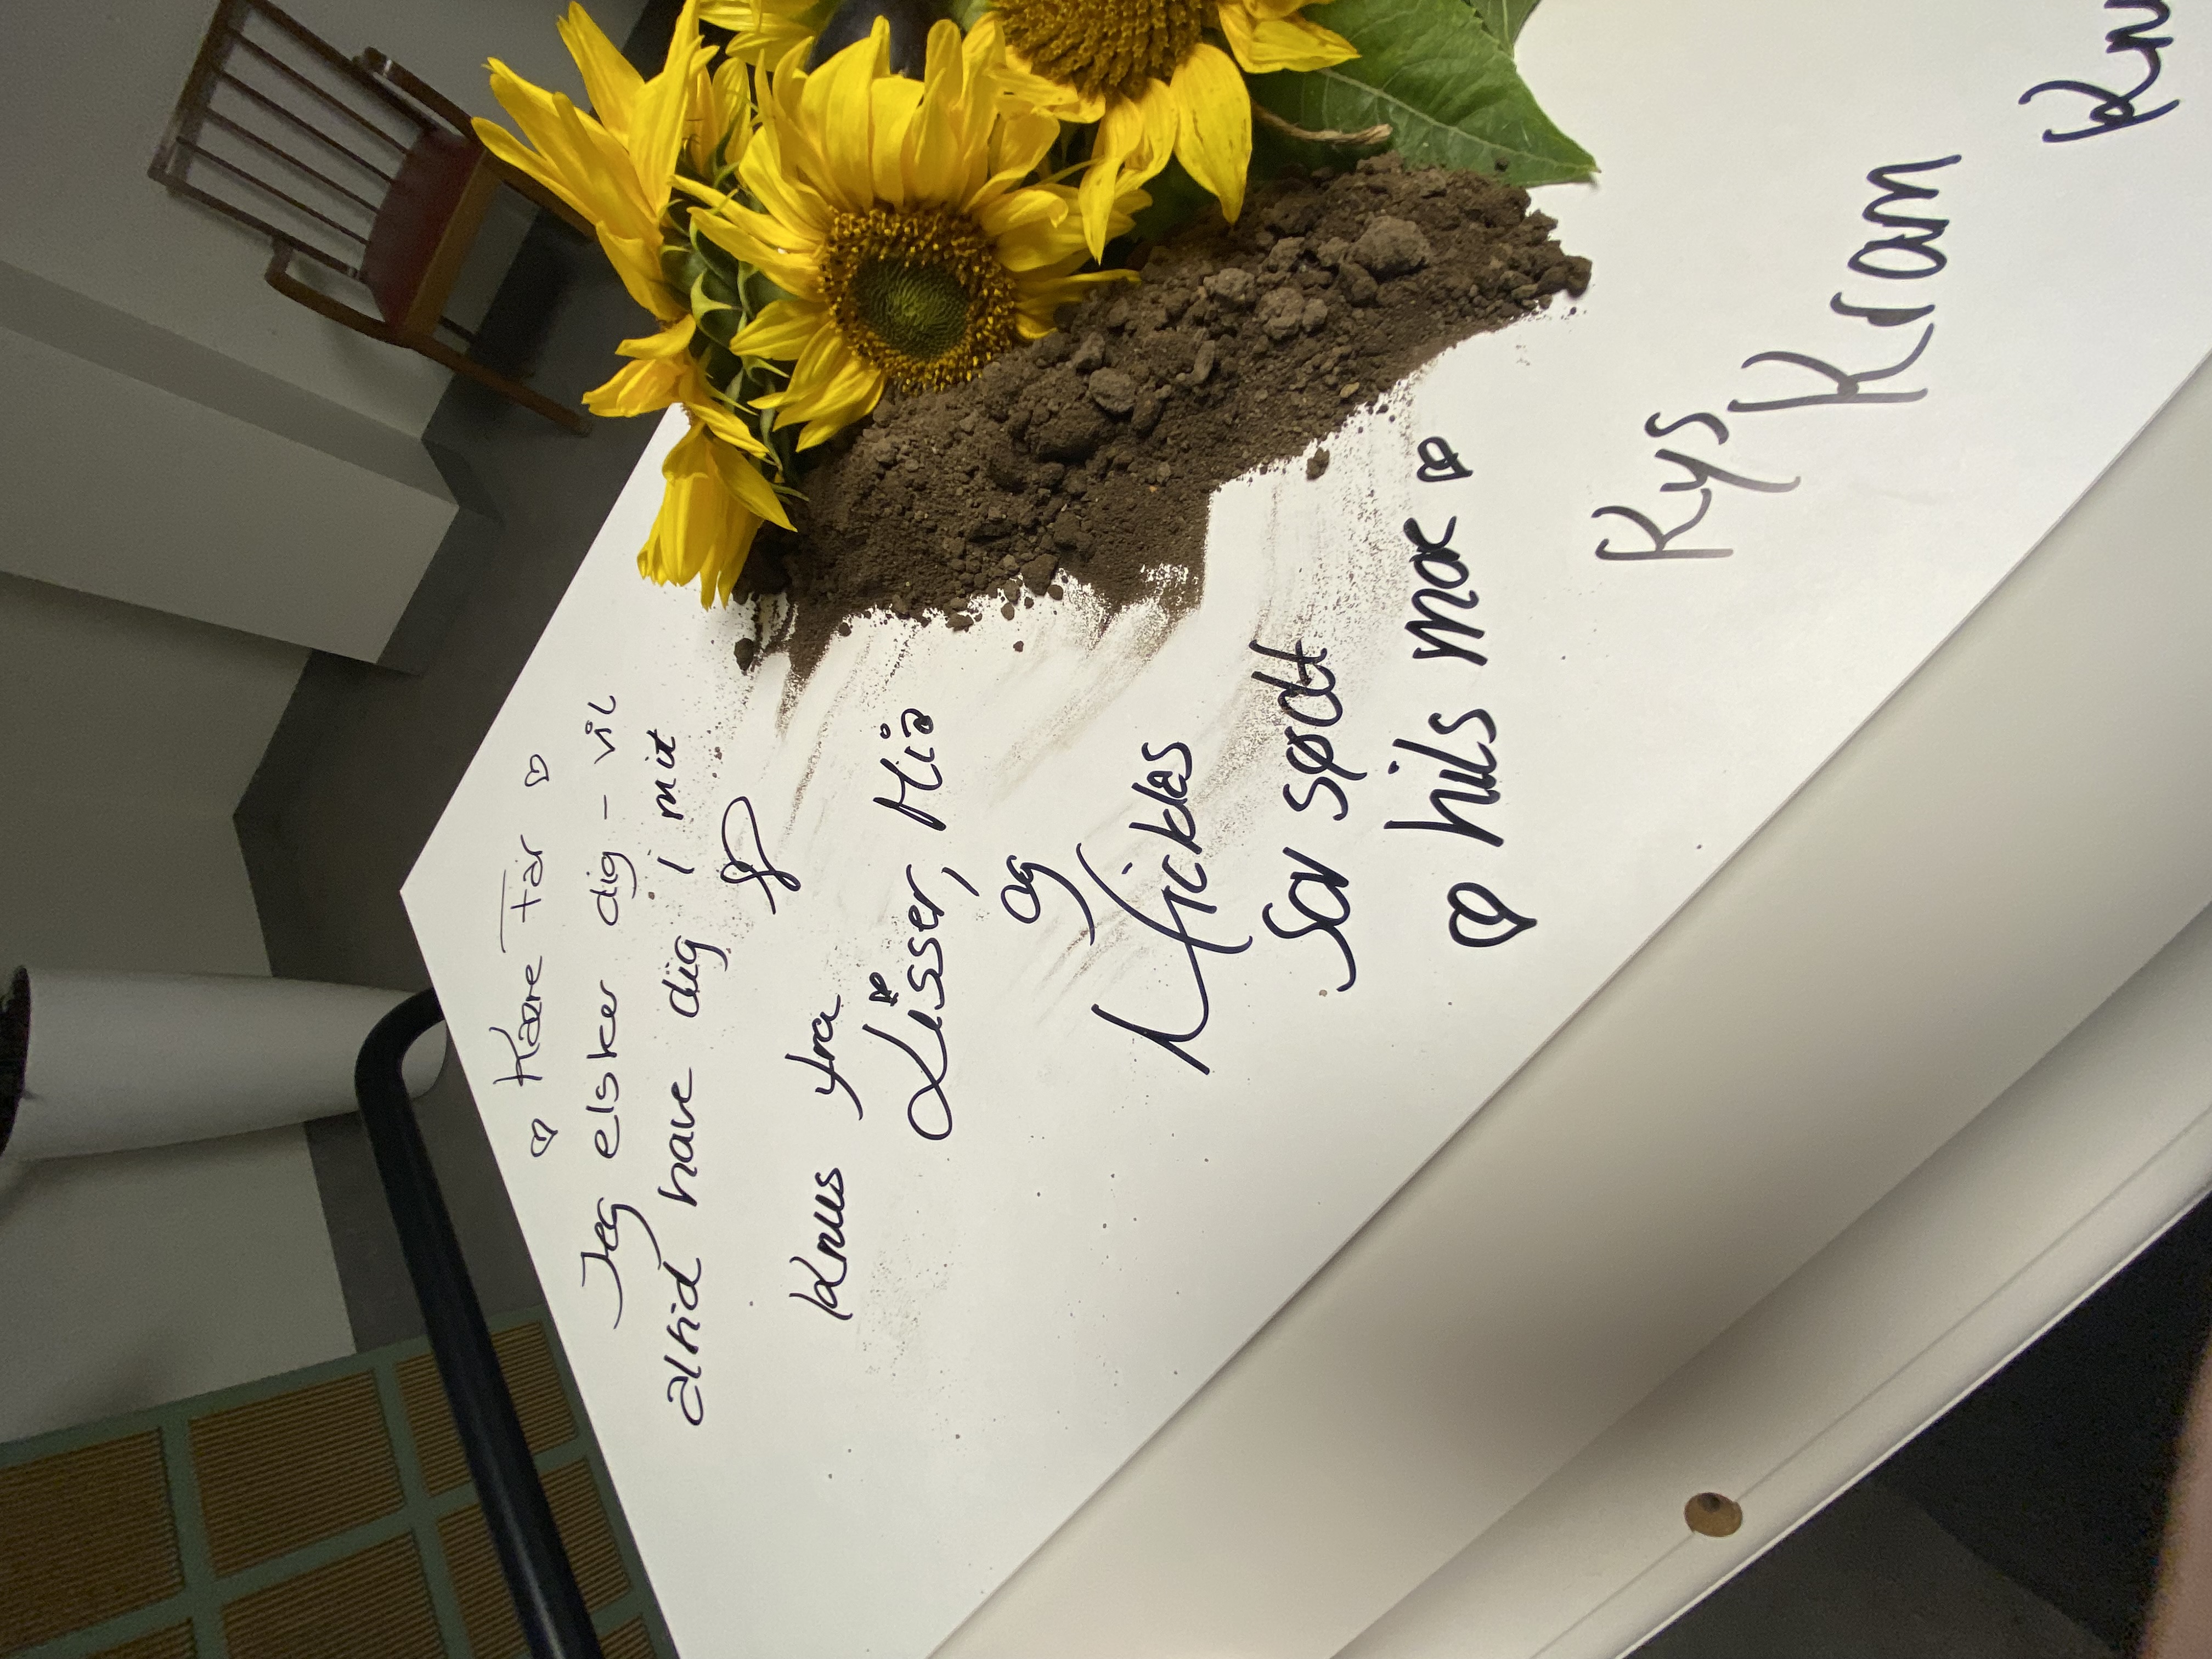 ♡ Kære Far ♡
Jeg elsker dig - vil
altid have dig i mit
♡
Knus fra
Lisser, Mia
og
Nicklas
Sov sødt
♡ hils mor ♡
Kys
Kram